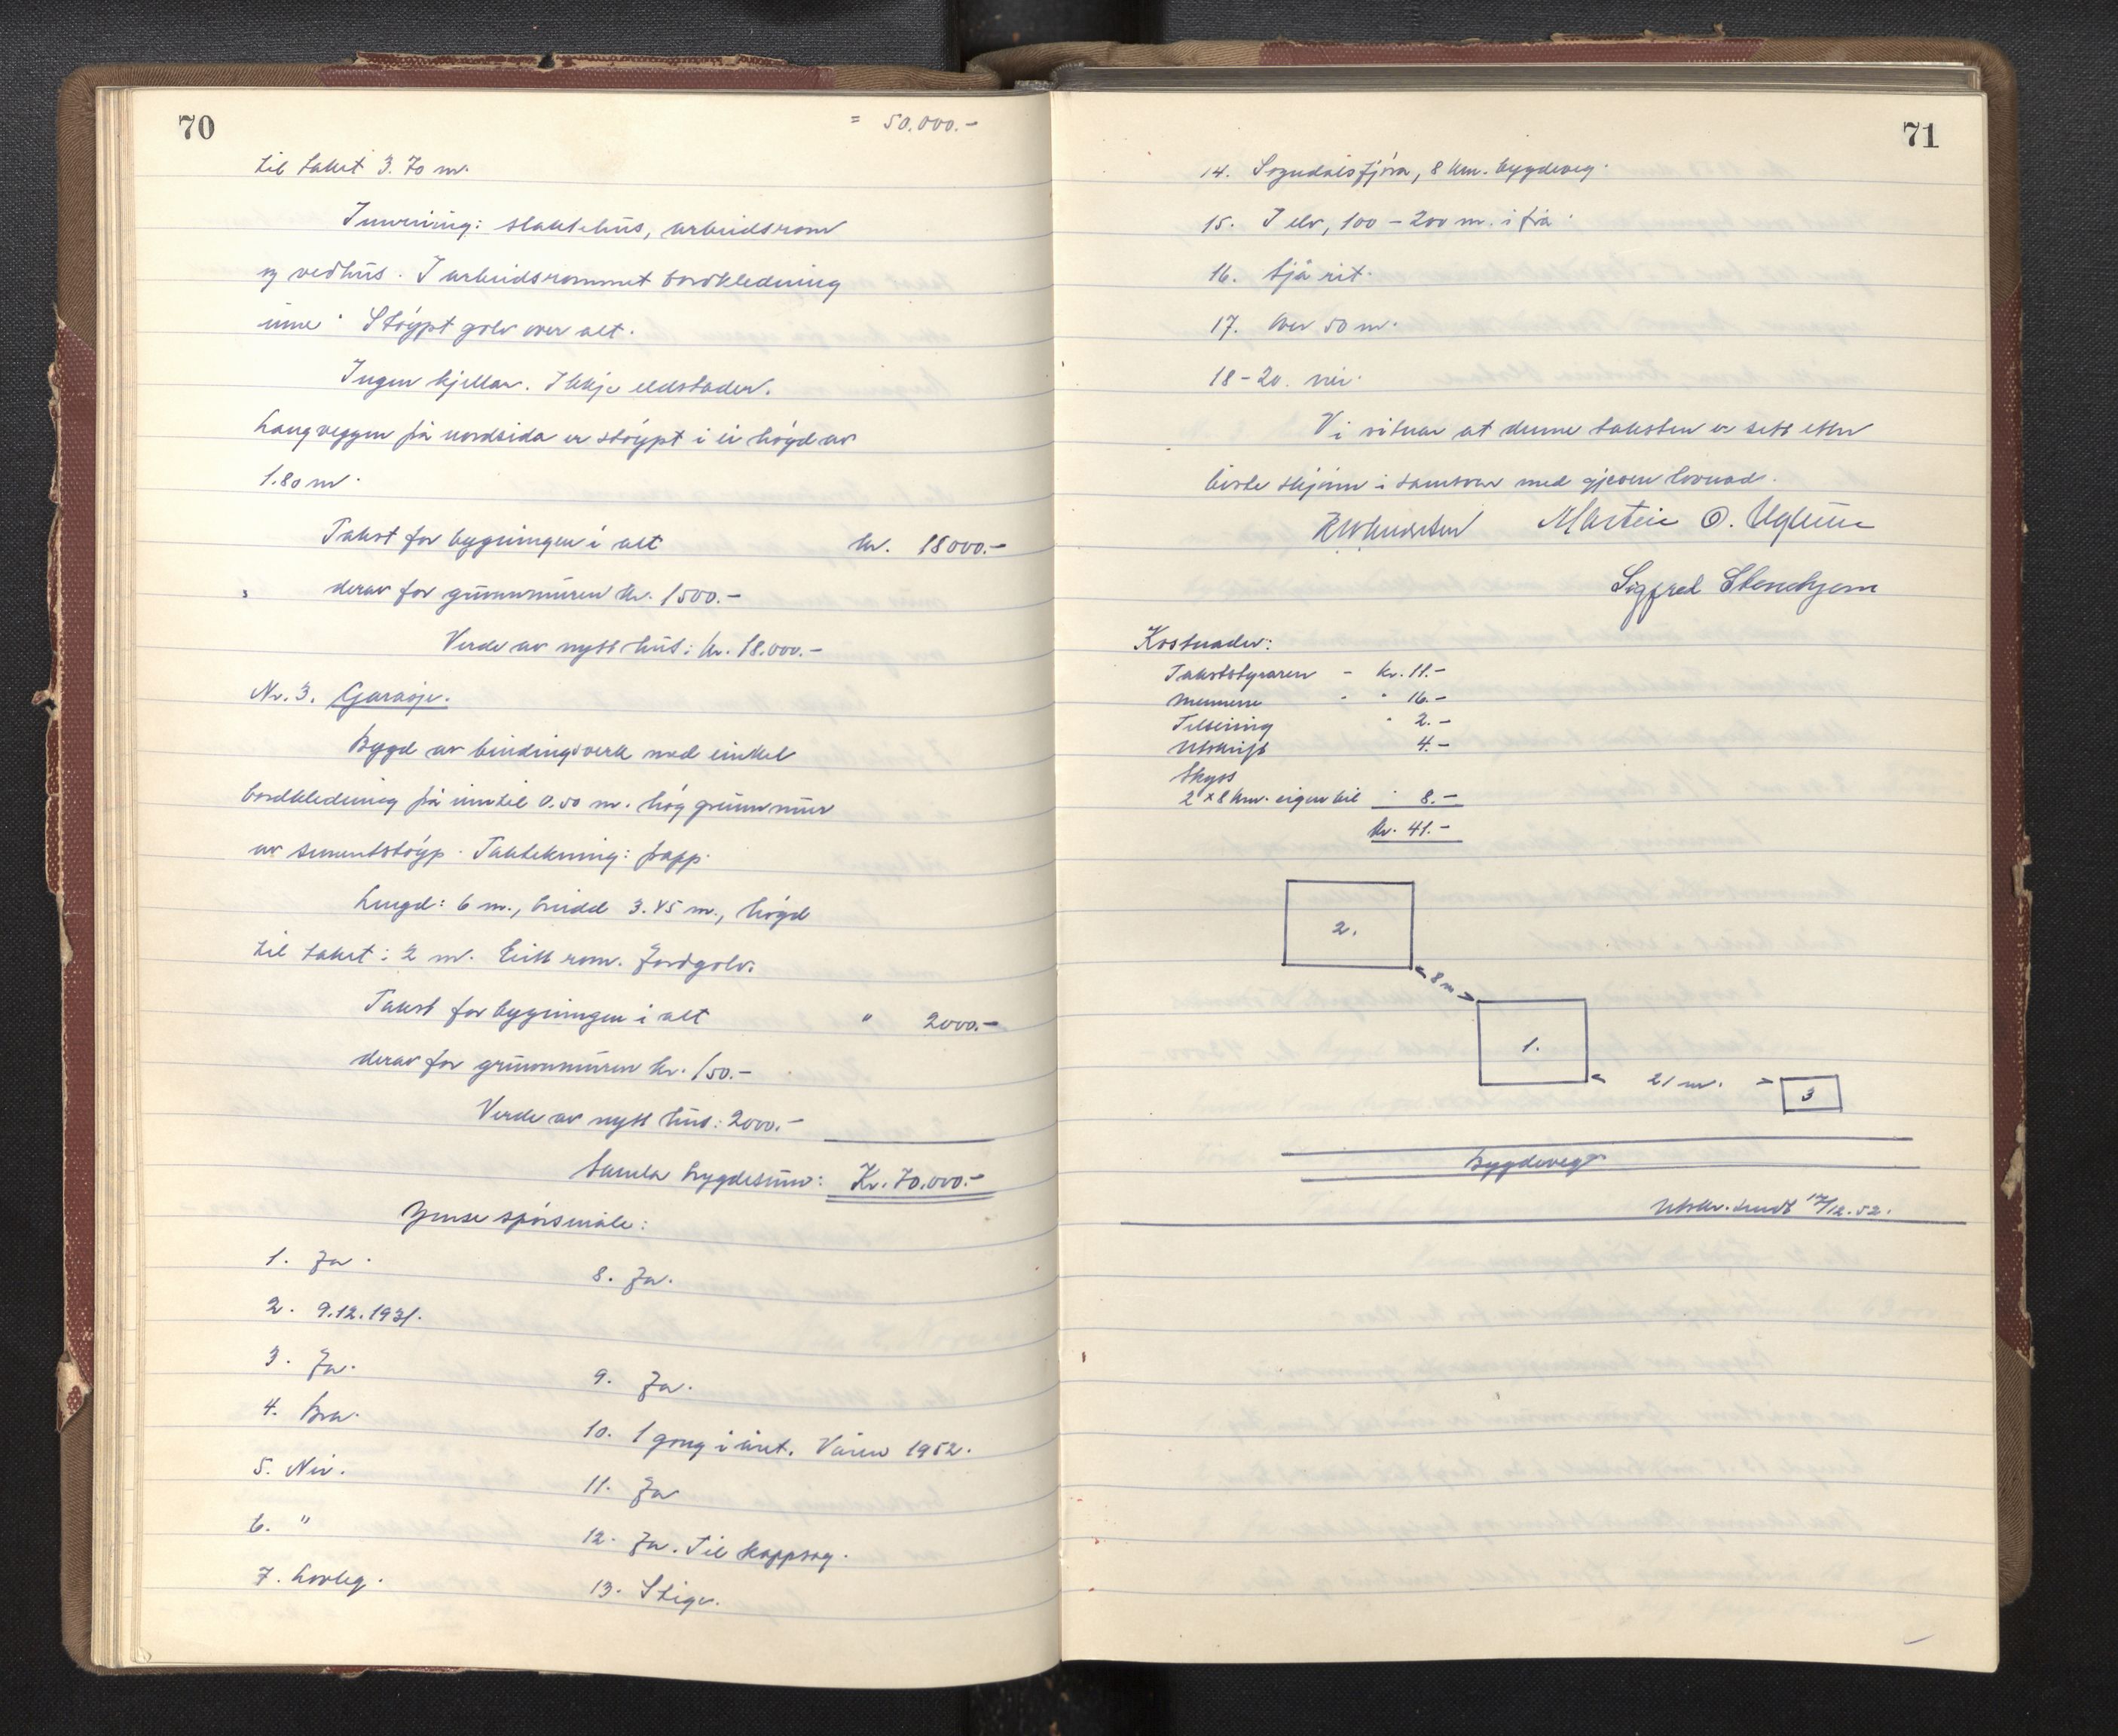 70
= 50.000.-
til taket 3.70 m.
Innreiing: slaktehus, arbeidsrom
og vedhus. I arbeidsrommet bordkledning
inne. Støypt golv over alt.
Ingen kjellar. Ikkje eldstader.
Langveggen på nordsida er støypt i ei høgd av
1.80 m.
Takst for bygningen i alt kr. 18000.-
derav for grunnmuren kr. 1500.-
Verde av nytt hus: kr. 18.000.-
Nr. 3. Garasje.
Bygd av bindingsverk med einkel
bordkledning på inntil 0.50 m. høg grunnmur
av sementstøyp. Taktekning: papp.
Lengd: 6 m., breidd 3.45 m., høgd
til taket: 2 m. Eitt rom. Jordgolv.
Takst for bygningen i alt " 2000.-
derav for grunnmuren kr. 150.-
Verde av nytt hus: 2000.-
Samla trygdesum: Kr. 70.000.-
Ymse spørsmåle:
1. Ja.
8. Ja.
2. 9.12.1931.
3. Ja.
9. Ja.
4. Bra.
10. 1 gong i året. Våren 1952.
5. Nei.
11. Ja
6. "
12. Ja. Til kappsag.
7. Lovleg.
13. Stige.
71
14. Sogndalsfjøra, 8 km. bygdeveg.
15. I elv, 100 - 200 m. ifrå.
16. Sjå rit.
17. Over 50 m.
18-20. nei.
Vi vitnar at denne taksten er sett etter
beste skjønn i samsvar med gjeven lovnad.
Marteie O. Uglum
Sigfred Stenehjem
Kostnader:
Takststyraren - kr. 11.-
Mennene " " 16.-
Tilseiing " 2.-
Utskrift 4.-
Skyss
2 x 8 km. eigen bil " 8.-
kr. 41.-
2.
8 m
1.
21 m.
3
Bygdeveg
Utskr. sendt 17/12.52.